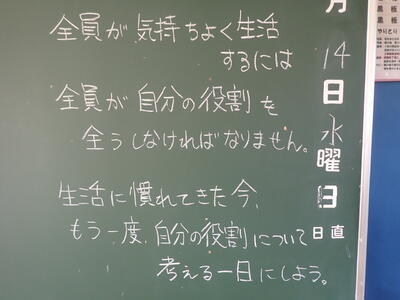 全員が気持ちよく生活
するには
全員が自分の役割を
全うしなければなりません。
生活に慣れてきた今、
もう一度、自分の役割について
考える一日にしよう。
月
14
日
水
曜
日
日直
黒板